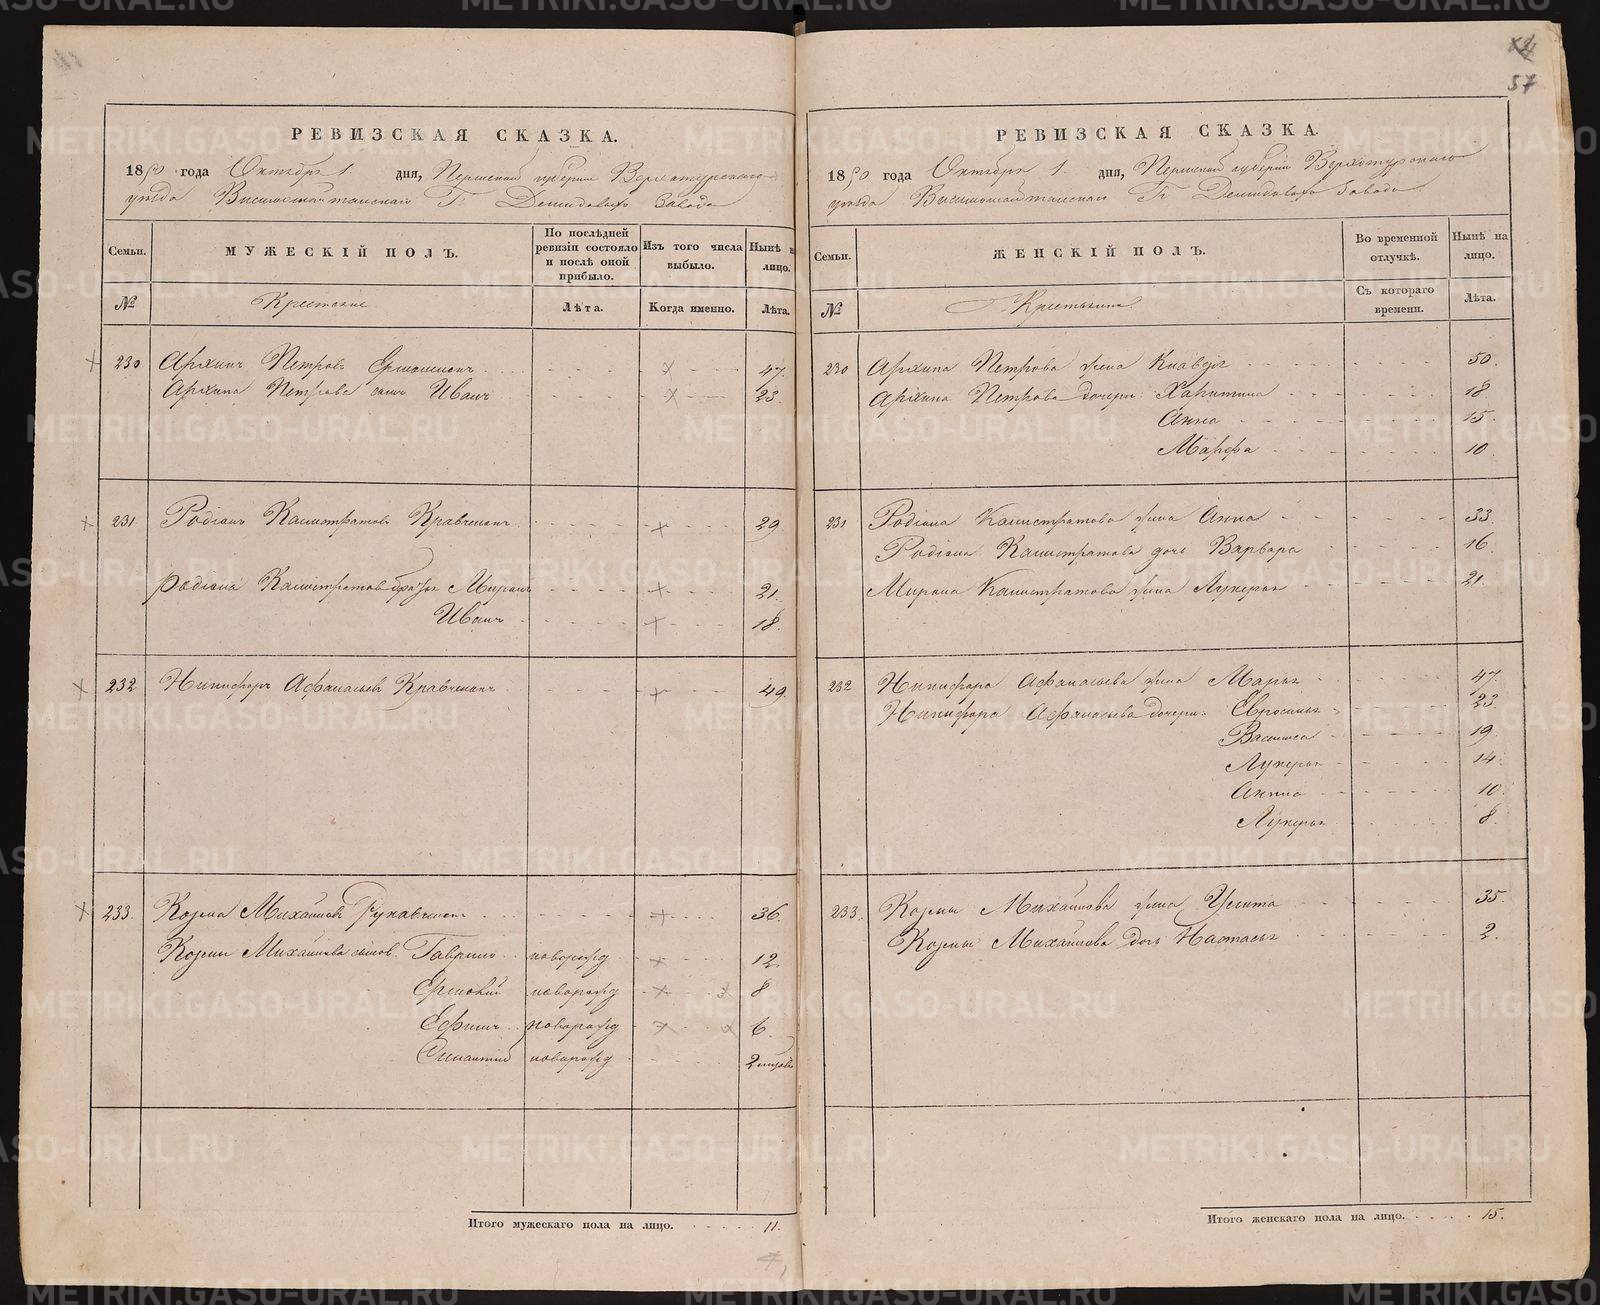 57
РЕВИЗСКАЯ СКАЗКА.
1850 года Октября 1. дня, Пермской губернии Верхотурскаго
уезда Висимошайтанскаго Гг. Демидовыхъ завода
Семьи.
МУЖЕСКІЙ ПОЛЪ.
По послѣдней ревизіи состояло и послѣ оной прибыло.
Изъ того числа выбыло.
Нынѣ на лицо.
№
Крестьяне
Лѣта.
Когда именно.
Лѣта.
230 Архипъ Петровъ 47.
Архипа Петрова сынъ Иванъ 23.
231 Родіонъ Калистратовъ Кравченко 29.
Родіона Калистратова братья Миронъ 21.
Иванъ 18.
232 Никифоръ Афанасьевъ Кравченко 49.
233. Козма Михайловъ 36.
Козмы Михайлова сынов. Гаврило новорожд 12.
новорожд 8
Ефимъ новорожд 6.
новорожд 2 месяцовъ
Итого мужескаго пола на лицо. 11.
РЕВИЗСКАЯ СКАЗКА.
1850 года Октября 1. дня, Пермской губерніи Верхотурскаго
уезда Висимошайтанскаго Гг. Демидовыхъ завода
Семьи.
ЖЕНСКІЙ ПОЛЪ.
Во временной отлучкѣ.
Нынѣ на лицо.
№
Крестьянки
Съ котораго времени.
Лѣта.
230 Архипа Петрова жена Клавдія 50.
Архипа Петрова дочери: Харитина 18
Анна 15.
Марфа 10.
231 Родіона Калистратова жена Анна 33.
Родіона Калистратова дочь Варвара 16.
Мирона Калистратова жена Лукерья 21.
232 Никифора Афанасьева жена Марья 47.
Никифора Афанасьева дочери: Евросинья 23.
Васили́са 19.
Лукерья 14.
Анна 10.
Лукерья 8.
233. Козмы Михайлова жена Улита 35.
Козмы Михайлова дочь Настасья 2.
Итого женскаго пола на лицо. 15.
METRIKI.GASO-URAL.RU